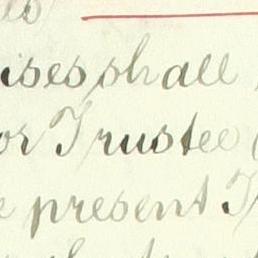 ises shall
or Trustee
present